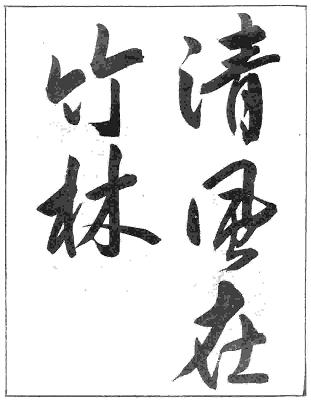 清風在
竹林